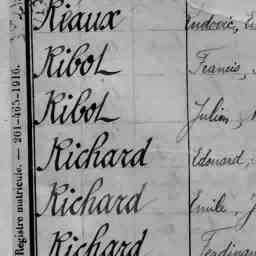 Riaux Ludovic,
Ribot Francis,
Ribot Julien,
Richard Edouard,
Richard Emile, J
Richard Ferdinan
Registre matricule. — 201-465-1916.